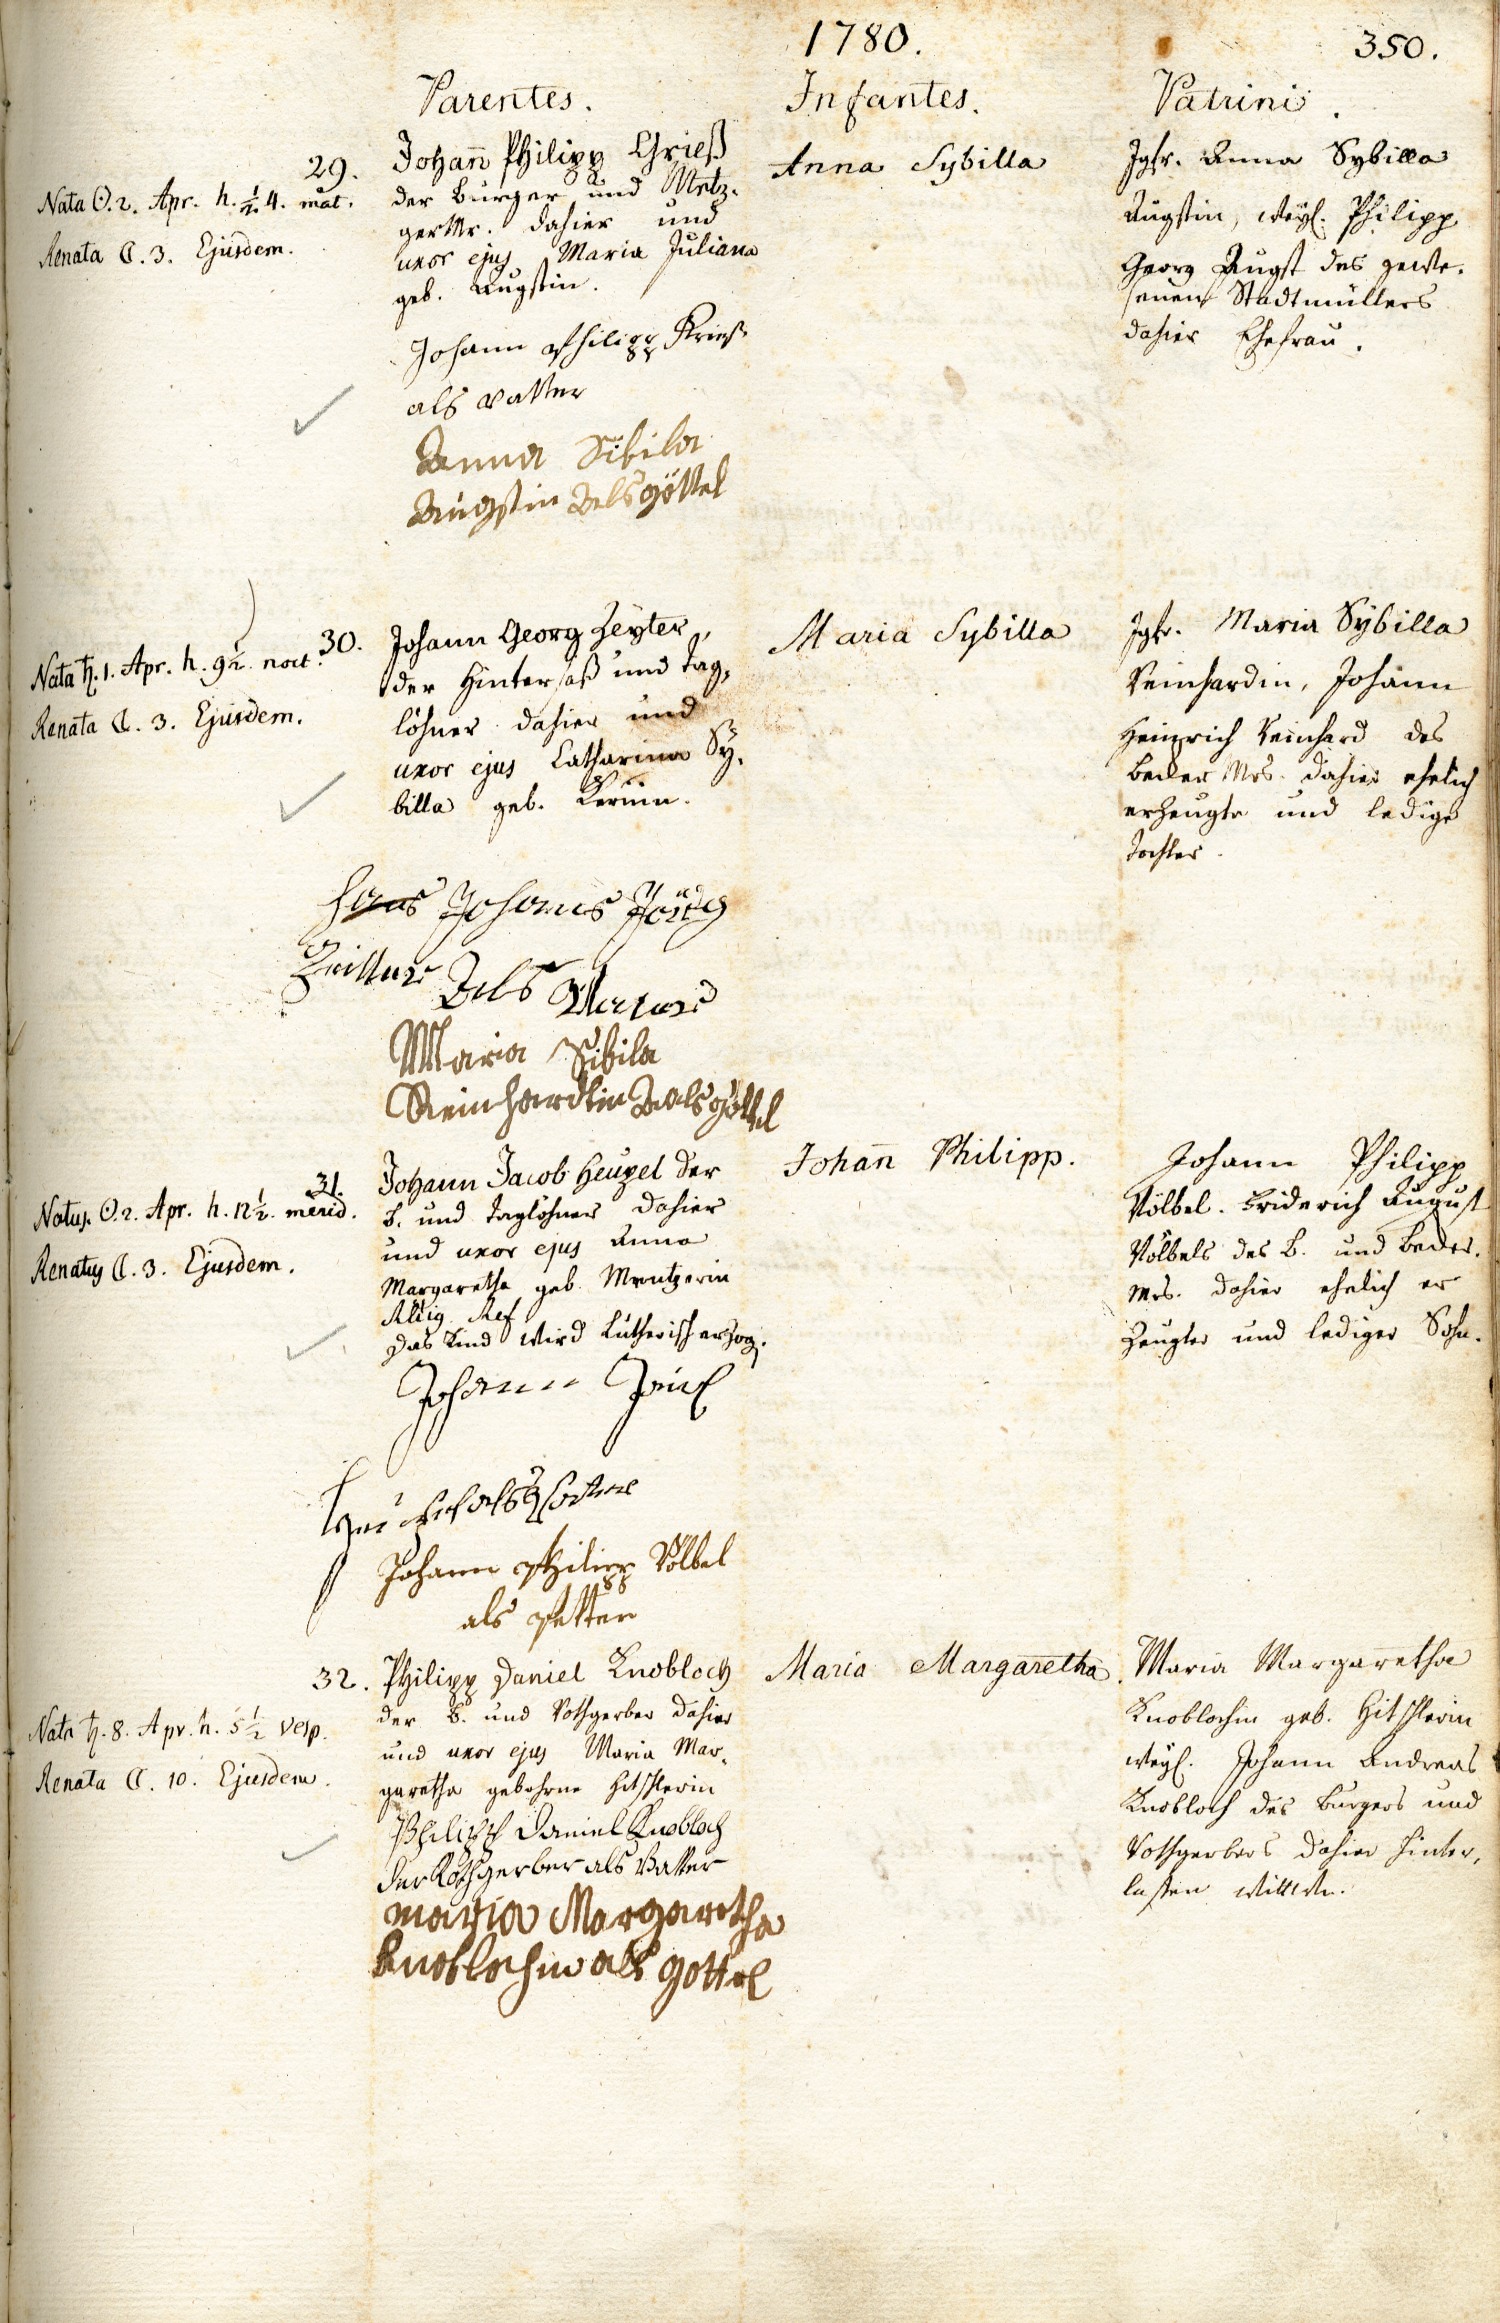 1780.
350.
Parentes.
Infantes.
Patrini.
29.
Nata ☉. 2. Apr. h. ½ 4. mat.
Renata ☾. 3. Ejusdem.
Johann Philipp Grieß
der Burger und Metz-
ger Mr. dahier und
uxor ejus Maria Juliana
geb. Augstin.
Johann Philipp Krieß
als vatter
Anna Sibila
Augstin Als göttel
Anna Sybilla
Jgfr. Anna Sybilla
Augstin, weyl. Philipp
Georg Augst des gewe-
senen Stadtmüllers
dahier Ehefrau.
30.
Nata ♄. 1. Apr. h. 9½ noct.
Renata ☾. 3. Ejusdem.
Johann Georg Zeyter,
der Hintersaß und Tag-
löhner dahier und
uxor ejus Catharina Sy-
billa geb.
Hans Johanes Jörg
Als
Maria Sibila
Reinhardtin Als göttel
Maria Sybilla
Jgfr. Maria Sybilla
Reinhardin, Johann
Heinrich Reinhard des
Becker Mrs. dahier ehelich
erzeugte und ledige
Tochter.
31.
Natus ☉. 2. Apr. h. 12½. merid.
Renatus ☾. 3. Ejusdem.
Johann Jacob Heupel der
B. und Taglöhner dahier
und uxor ejus Anna
Margaretha geb. Mentzerin
Relig. Ref.
das Kind wird Lutherisch erzog.
Johann
Johann Philipp Völbel
als Petter
Johann Philipp.
Johann Philipp
Völbel. Friderich August
Völbels des B. und Becker-
Mrs. dahier ehelich er
zeugter und lediger Sohn.
32.
Nata ♄. 8. Apr. h. 5½ vesp.
Renata ☾. 10. Ejusdem.
Philipp Daniel Knobloch
der B. und Rothgerber dahier
und uxor ejus Maria Mar-
garetha gebohrne Hitschlerin
Philipp Daniel Knobloch
der Rothgerber als Vatter
Maria Margaretha
Knoblochin als gottel
Maria Margaretha
Maria Margaretha
Knoblochin geb. Hitschlerin
weyl. Johann Andreas
Knobloch des Burgers und
Rothgerbers dahier hinter-
laßen Wittwe.